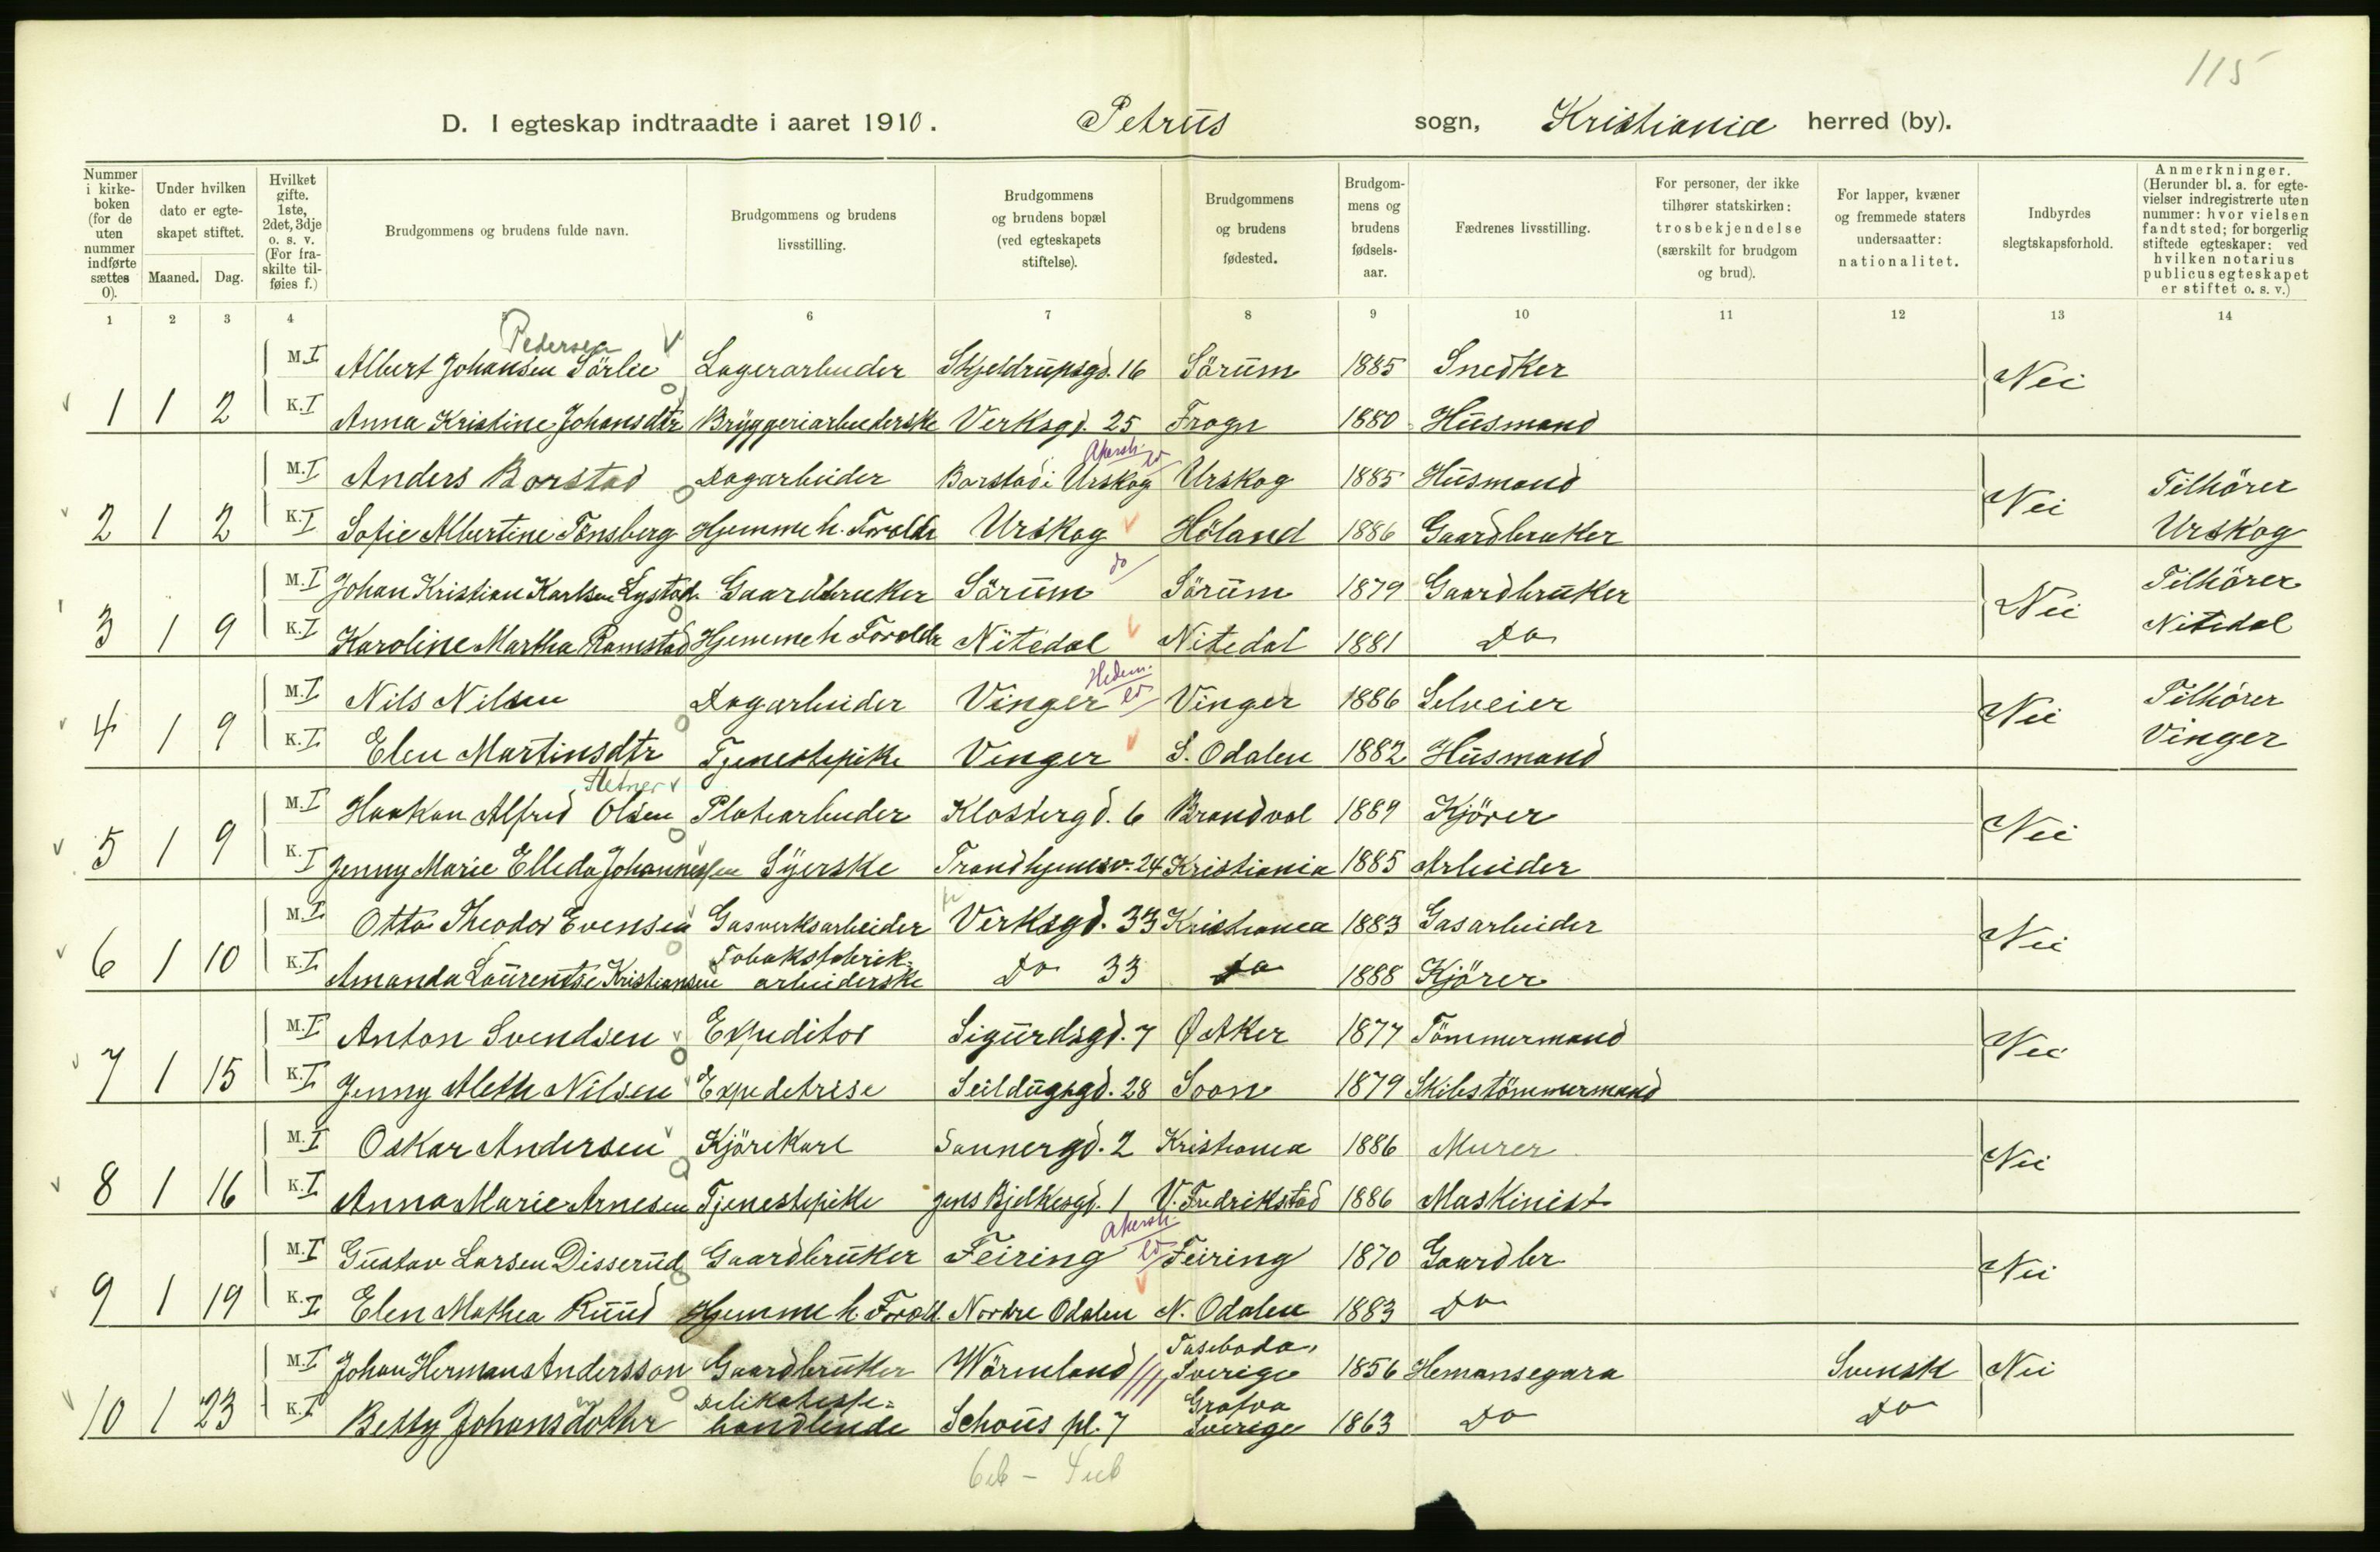 115
D. I egteskap indtraadte i aaret 1910. Petrus sogn, Kristiania herred (by).
Nummer i kirke-boken (for de uten nummer indførte sættes 0). Under hvilken dato er egte-skapet stiftet. Maaned. Dag. Hvilket gifte. 1ste, 2det, 3dje o. s. v. (For fra-skilte til-føies f.) Brudgommens og brudens fulde navn. Brudgommens og brudens livsstilling. Brudgommens og brudens bopæl (ved egteskapets stiftelse). Brudgommens og brudens fødested. Brudgom-mens og brudens fødsels-aar. Fædrenes livsstilling. For personer, der ikke tilhører statskirken: trosbekjendelse (særskilt for brudgom og brud). For lapper, kvæner og fremmede staters undersaatter: nationalitet. Indbyrdes slegtskapsforhold. Anmerkninger. (Herunder bl. a. for egte-vielser indregistrerte uten nummer: hvor vielsen fandt sted; for borgerlig stiftede egteskaper: ved hvilken notarius publicus egteskapet er stiftet o. s. v.)
1 2 3 4 5 6 7 8 9 10 11 12 13 14
Pedersen
M. I Albert Johansen Sörlie Lagerarbeider Skjeldrupsgd. 16 Sörum 1885 Snedker Nei
1 1 2 K. I Anna Kristine Johansdtr Bryggeriarbeiderske Verksgd. 25 Frogn 1880 Husmand
Akersh.
M. I Anders Borstad Dagarbeider Borstad i Urskog Urskog 1885 Husmand Nei Tilhörer
2 1 2 K. I Sofie Albertine Tönsberg Hjemme h. Foreldr Urskog Höland 1886 Gaardbruker Urskog
do
M. I Johan Kristian Karlsen Lystad Gaardbruker Sörum Sörum 1879 Gaardbruker Nei Tilhörer
3 1 9 K. I Karoline Martha Ramstad Hjemme h Foreldr Nitedal Nitedal 1881 Do Nitedal
Hedem.
M. I Nils Nilsen Dagarbeider Vinger Vinger 1886 Selveier Nei Tilhörer
4 1 9 K. I Elen Martinsdtr Tjenestepike Vinger S. Odalen 1882 Husmand Vinger
M. I Haakon Alfred Olsen Platearbeider Klostergd. 6 Brandval 1889 Kjörer Nei
5 1 9 K. I Jenny Marie Elleda Johannessen Syerske Trondhjemsv. 24 Kristiania 1885 Arbeider
M. I Otto Theodor Evensen Gasverksarbeider Verksgd. 33 Kristiania 1883 Gasarbeider Nei
6 1 10 K. I Amanda Laurentse Kristiansen Tobaksfabrik-arbeiderske Do 33 do 1888 Kjörer
M. I Anton Svendsen Expeditor Sigurdsgd. 7 Ø Aker 1877 Tömmermand Nei
7 1 15 K. I Jenny Aleth Nilsen Expeditrise Seildugsgd. 28 Soon 1879 Skibstömmermand
M. I Oskar Andersen Kjörekarl Sannergd. 2 Kristiania 1886 Murer Nei
8 1 16 K. I Anna Marie Arnesen Tjenestepike Jens Bjelkesgd. 1 V. Fredrikstad 1886 Maskinist
Akersh.
M. I Gustav Larsen Disserud Gaardbruker Feiring Feiring 1870 Gaardbr Nei
9 1 19 K. I Elen Mathea Ruud Hjemme h. Foreld. Nordre Odalen N. Odalen 1883 Do
M. I Johan Herman Andersson Gaardbruker Wärmland Sverige 1856 Hemansegara Svensk Nei
10 1 23 K. I Betty Johansdotter Delikatesse-handlende Schous pl. 7 Grafva Sverige 1863 Do Do